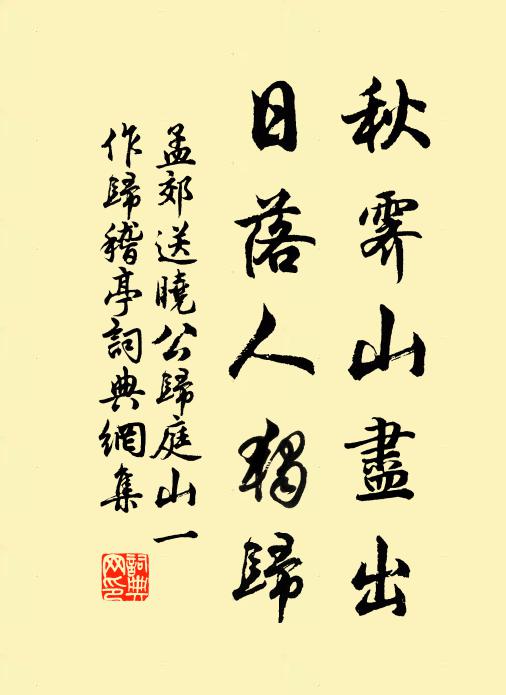 秋霽山盡出
日落人獨歸
孟郊送曉公歸庭山一
作歸稽亭詞典網集
詞典
网印